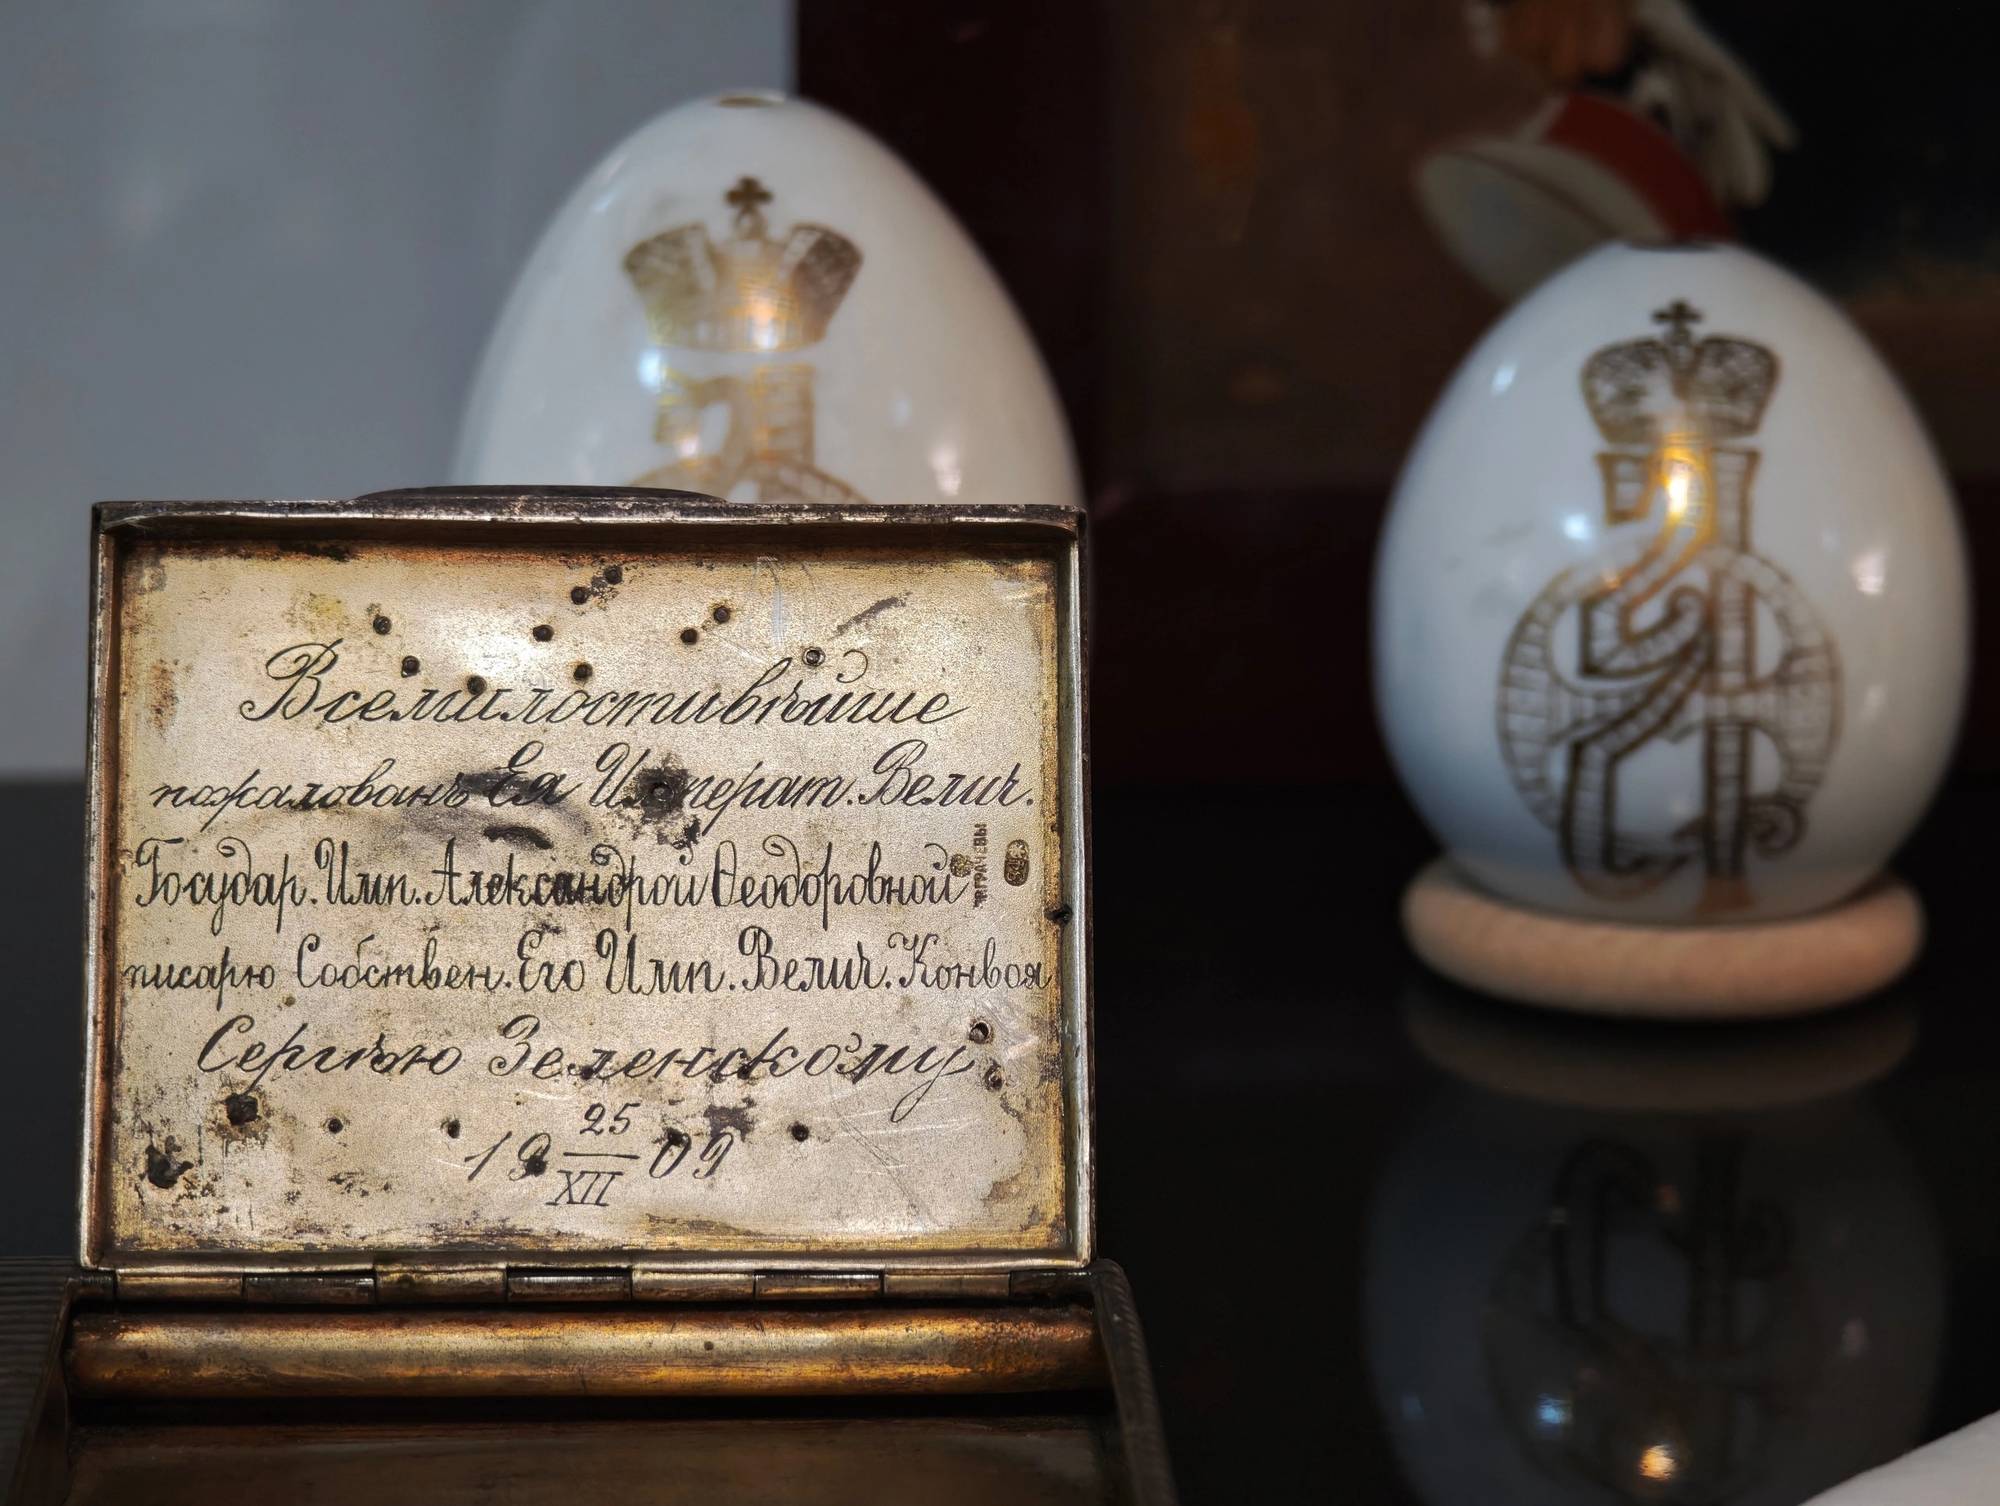 Всемилостивѣйше
пожалованъ Ея Императ. Велич.
Государ. Имп. Александрой Ѳеодоровной
БР.ГРАЧЕВЫ
писарю Собствен. Его Имп. Велич. Конвоя
Сергѣю Зеленскому
19 25/XII 09